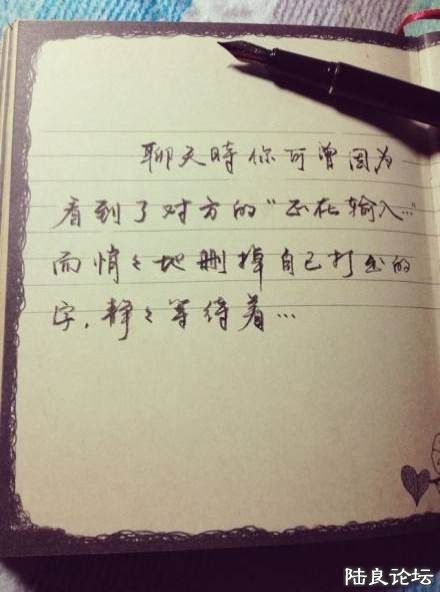 聊天時你可曾因为
看到了对方的“正在输入…”
而悄々地删掉自己打出的
字，静々等待着…
陆良论坛